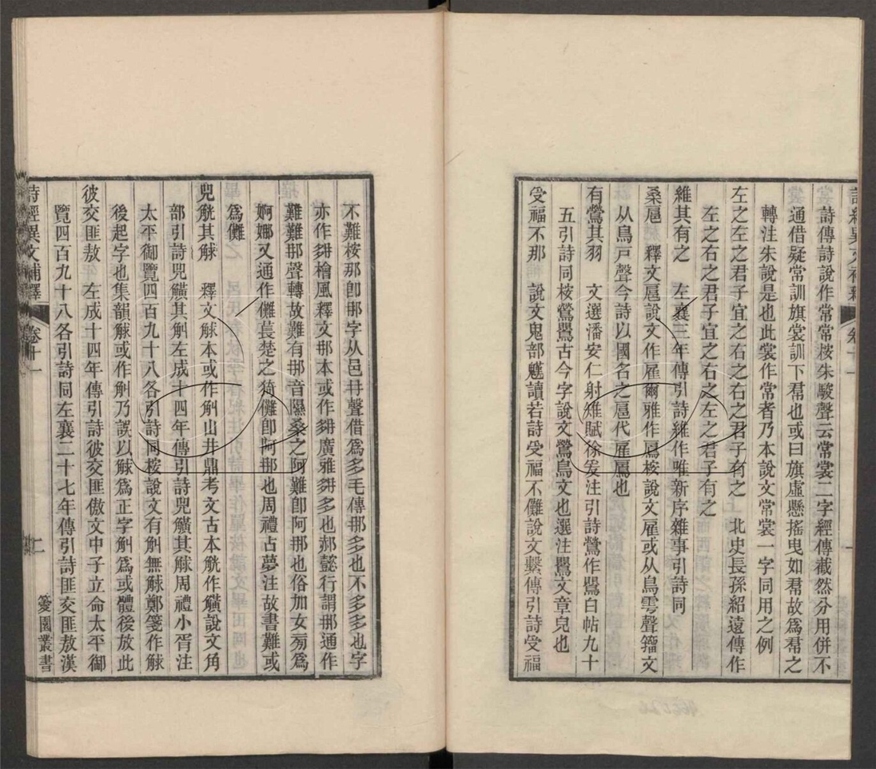 詩經異文補釋
卷十一
詩傳詩說作常常桉朱駿聲云常裳二字經傳截然分用併不
通借疑常訓旗裳訓下帬也或曰旗虛懸搖曳如帬故爲帬之
轉注朱說是也此裳作常者乃本說文常裳一字同用之例
左之左之君子宜之右之右之君子有之　北史長孫紹遠傳作
左之右之君子宜之右之左之君子有之
維其有之　左襄三年傳引詩維作唯新序雜事引詩同
桑扈　釋文扈說文作雇爾雅作鳸桉說文雇或从鳥雩聲籀文
从鳥戶聲今詩以國名之扈代雇鳸也
有鶯其羽　文選潘安仁射雉賦徐爰注引詩鶯作鸎白帖九十
五引詩同桉鶯鸎古今字說文鶯鳥文也選注鸎文章皃也
受福不那　說文鬼部魕讀若詩受福不儺說文繫傳引詩受福
不難桉那卽𨙻字从邑冄聲借爲多毛傳那多也不多多也字
亦作𡖇檜風釋文𨙻本或作𡖇廣雅𡖇多也郝懿行謂𨙻通作
難難𨙻聲轉故難有𨙻音隰桑之阿難卽阿𨙻也俗加女㫄爲
婀娜又通作儺萇楚之猗儺卽阿𨙻也周禮占夢注故書難或
爲儺
兕觥其觩　釋文觩本或作觓山井鼎考文古本觥作觵說文角
部引詩兕觵其觓左成十四年傳引詩兕觵其觩周禮小胥注
太平御覽四百九十八各引詩同桉說文有觓無觩鄭箋作觩
後起字也集韻觩或作觓乃誤以觩爲正字觓爲或體後放此
彼交匪敖　左成十四年傳引詩彼交匪傲文中子立命太平御
覽四百九十八各引詩同左襄二十七年傳引詩匪交匪敖漢
詩經異文補釋
卷十一
二
篸園叢書